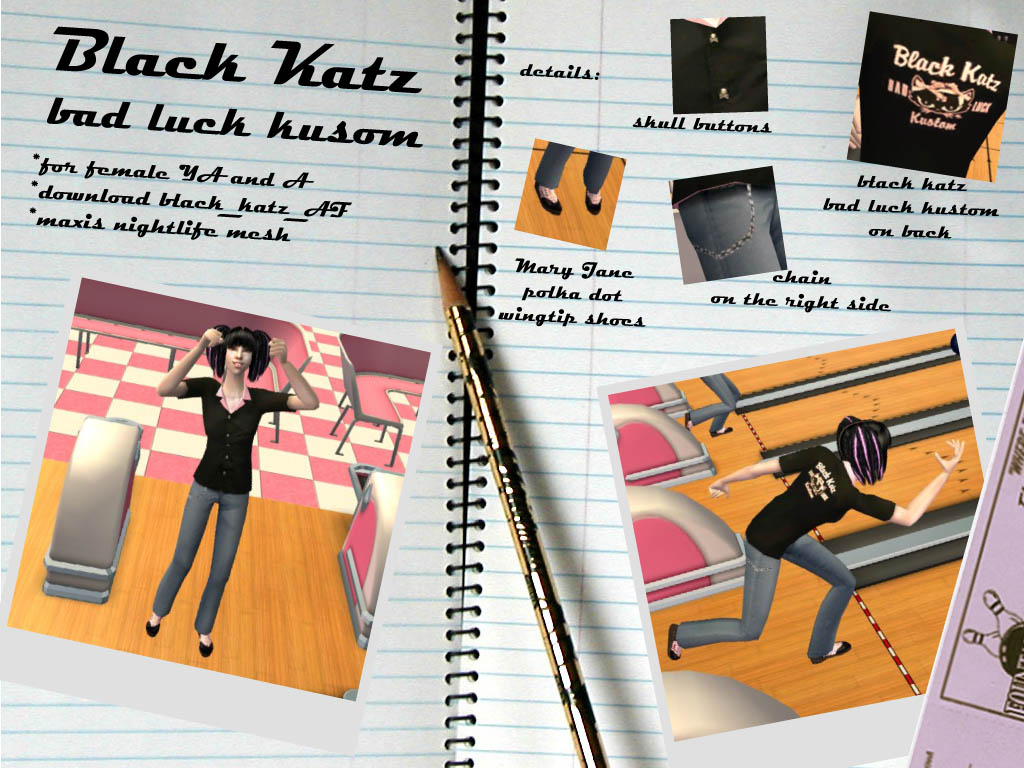 Black Katz
bad luck kusom
*for female YA and A
*download black_katz_AF
*maxis nightlife mesh
details:
skull buttons
Black Katz
BAD LUCK
Kustom
black katz
bad luck kustom
on back
Mary Jane
polka dot
wingtip shoes
chain
on the right side
Black Katz